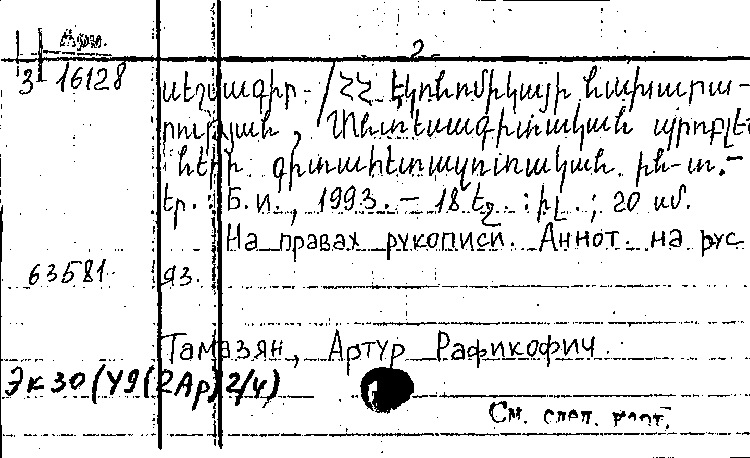 Арм.
2
3 16128 սեղմագիր. / ՀՀ Էկոնոմիկայի նախարա-
րության, Տնտեսագիտական պրոբլեմ-
ների գիտահետազոտական ին-տ.-
Եր. : Б.и., 1993. – 18 էջ. : իլ. ; 20 սմ.
На правах рукописи. Аннот. на рус
63581 яз.
Тамазян, Артур Рафикофич.
Эк 30 (У9(2Ар) 2/4)
См. след. карт.